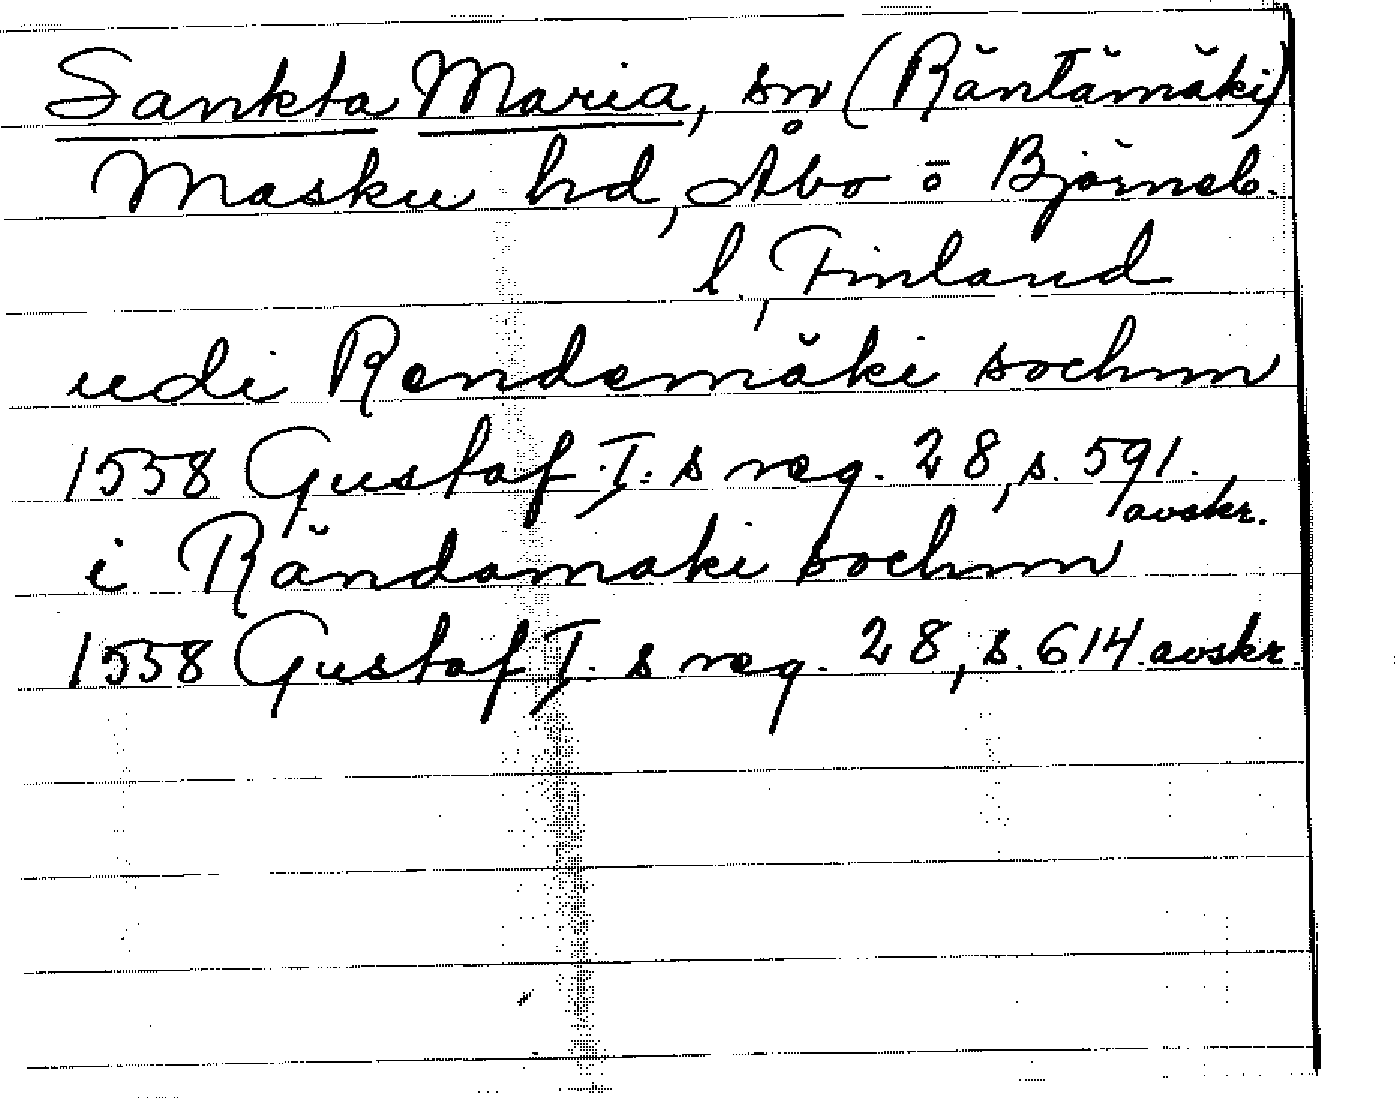 Sankta Maria, sn (Räntämäki)
Masku hd, Åbo o Björneb.
l., Finland
udi Rendemäki sochnn
1558 Gustaf I:s reg. 28, s. 591.
avskr.
i Rändamaki sochnn
1558 Gustaf I:s reg. 28, s. 614 avskr.